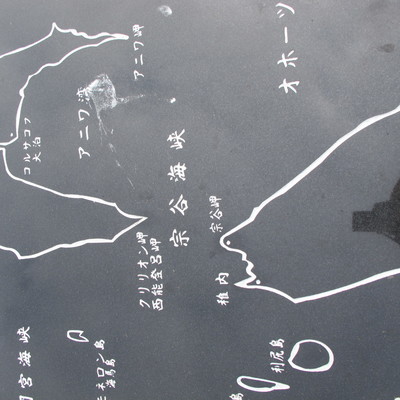 アニワ岬
オホーツ
アニワ湾
コルサコフ
大泊
宗谷海峡
宗谷岬
クリリオン岬
西能登呂岬
稚内
宮海峡
ネロン島
海馬島
利尻島
島